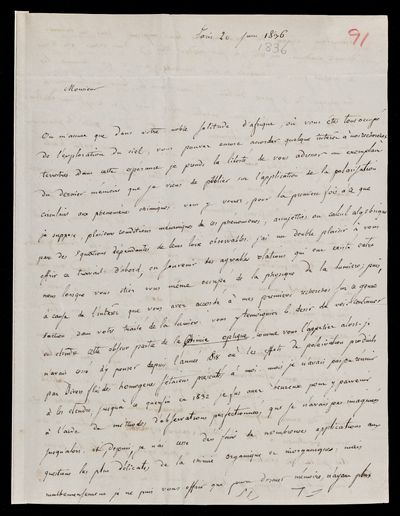 Paris 20 juin 1836
1836
91
Monsieur
On m'assure que dans votre noble solitude d'afrique, où vous etes tout occupé
de l'exploration du ciel, vous pouvez encore accorder quelque interêt à nos recherches
terrestres dans cette esperance je prends la liberté de vous adresser un exemplaire
du dernier mémoire que je viens de publier sur l'application de la polarisation
circulaire aux phenomènes chimiques. vous y verrez, pour la première fois, à ce que
je suppose, plusieurs conditions mécaniques de ces phenomènes, assujetties au calcul algebrique
par des équations dependantes de leurs loix observables. j'ai un double plaisir à vous
offrir ce travail. d'abord, en souvenir des agreables relations qui ont existé entre
nous lorsque vous etiez vous même occupé de la physique de la lumière; puis,
à cause de l'interêt que vous avez accordé à mes premieres recherches sur ce genre
d'action dans votre traité de la lumière. vous y temoigniez le desir de voir continuer
et etendre cette obscure partie de la chimie optique, comme vous l'appeliez alors. je
n'avais cessé d'y penser depuis l'année 1818 où les effets de polarisation produits
par divers fluides homogènes s'etaient presentés à moi. mais je n'avais pas pu reussir
à les etendre, jusqu'à ce qu'enfin en 1832 je fus assez heureux pour y parvenir
à l'aide de methodes d'observations perfectionnées, que je n'avais pas imaginées
jusqu'alors. et depuis, je n'ai cessé d'en faire de nombreuses applications aux
questions les plus délicates de la chimie organique ou inorganique; mais
malheureusement je ne puis vous offrir que mon dernier mémoire, n'ayant plus